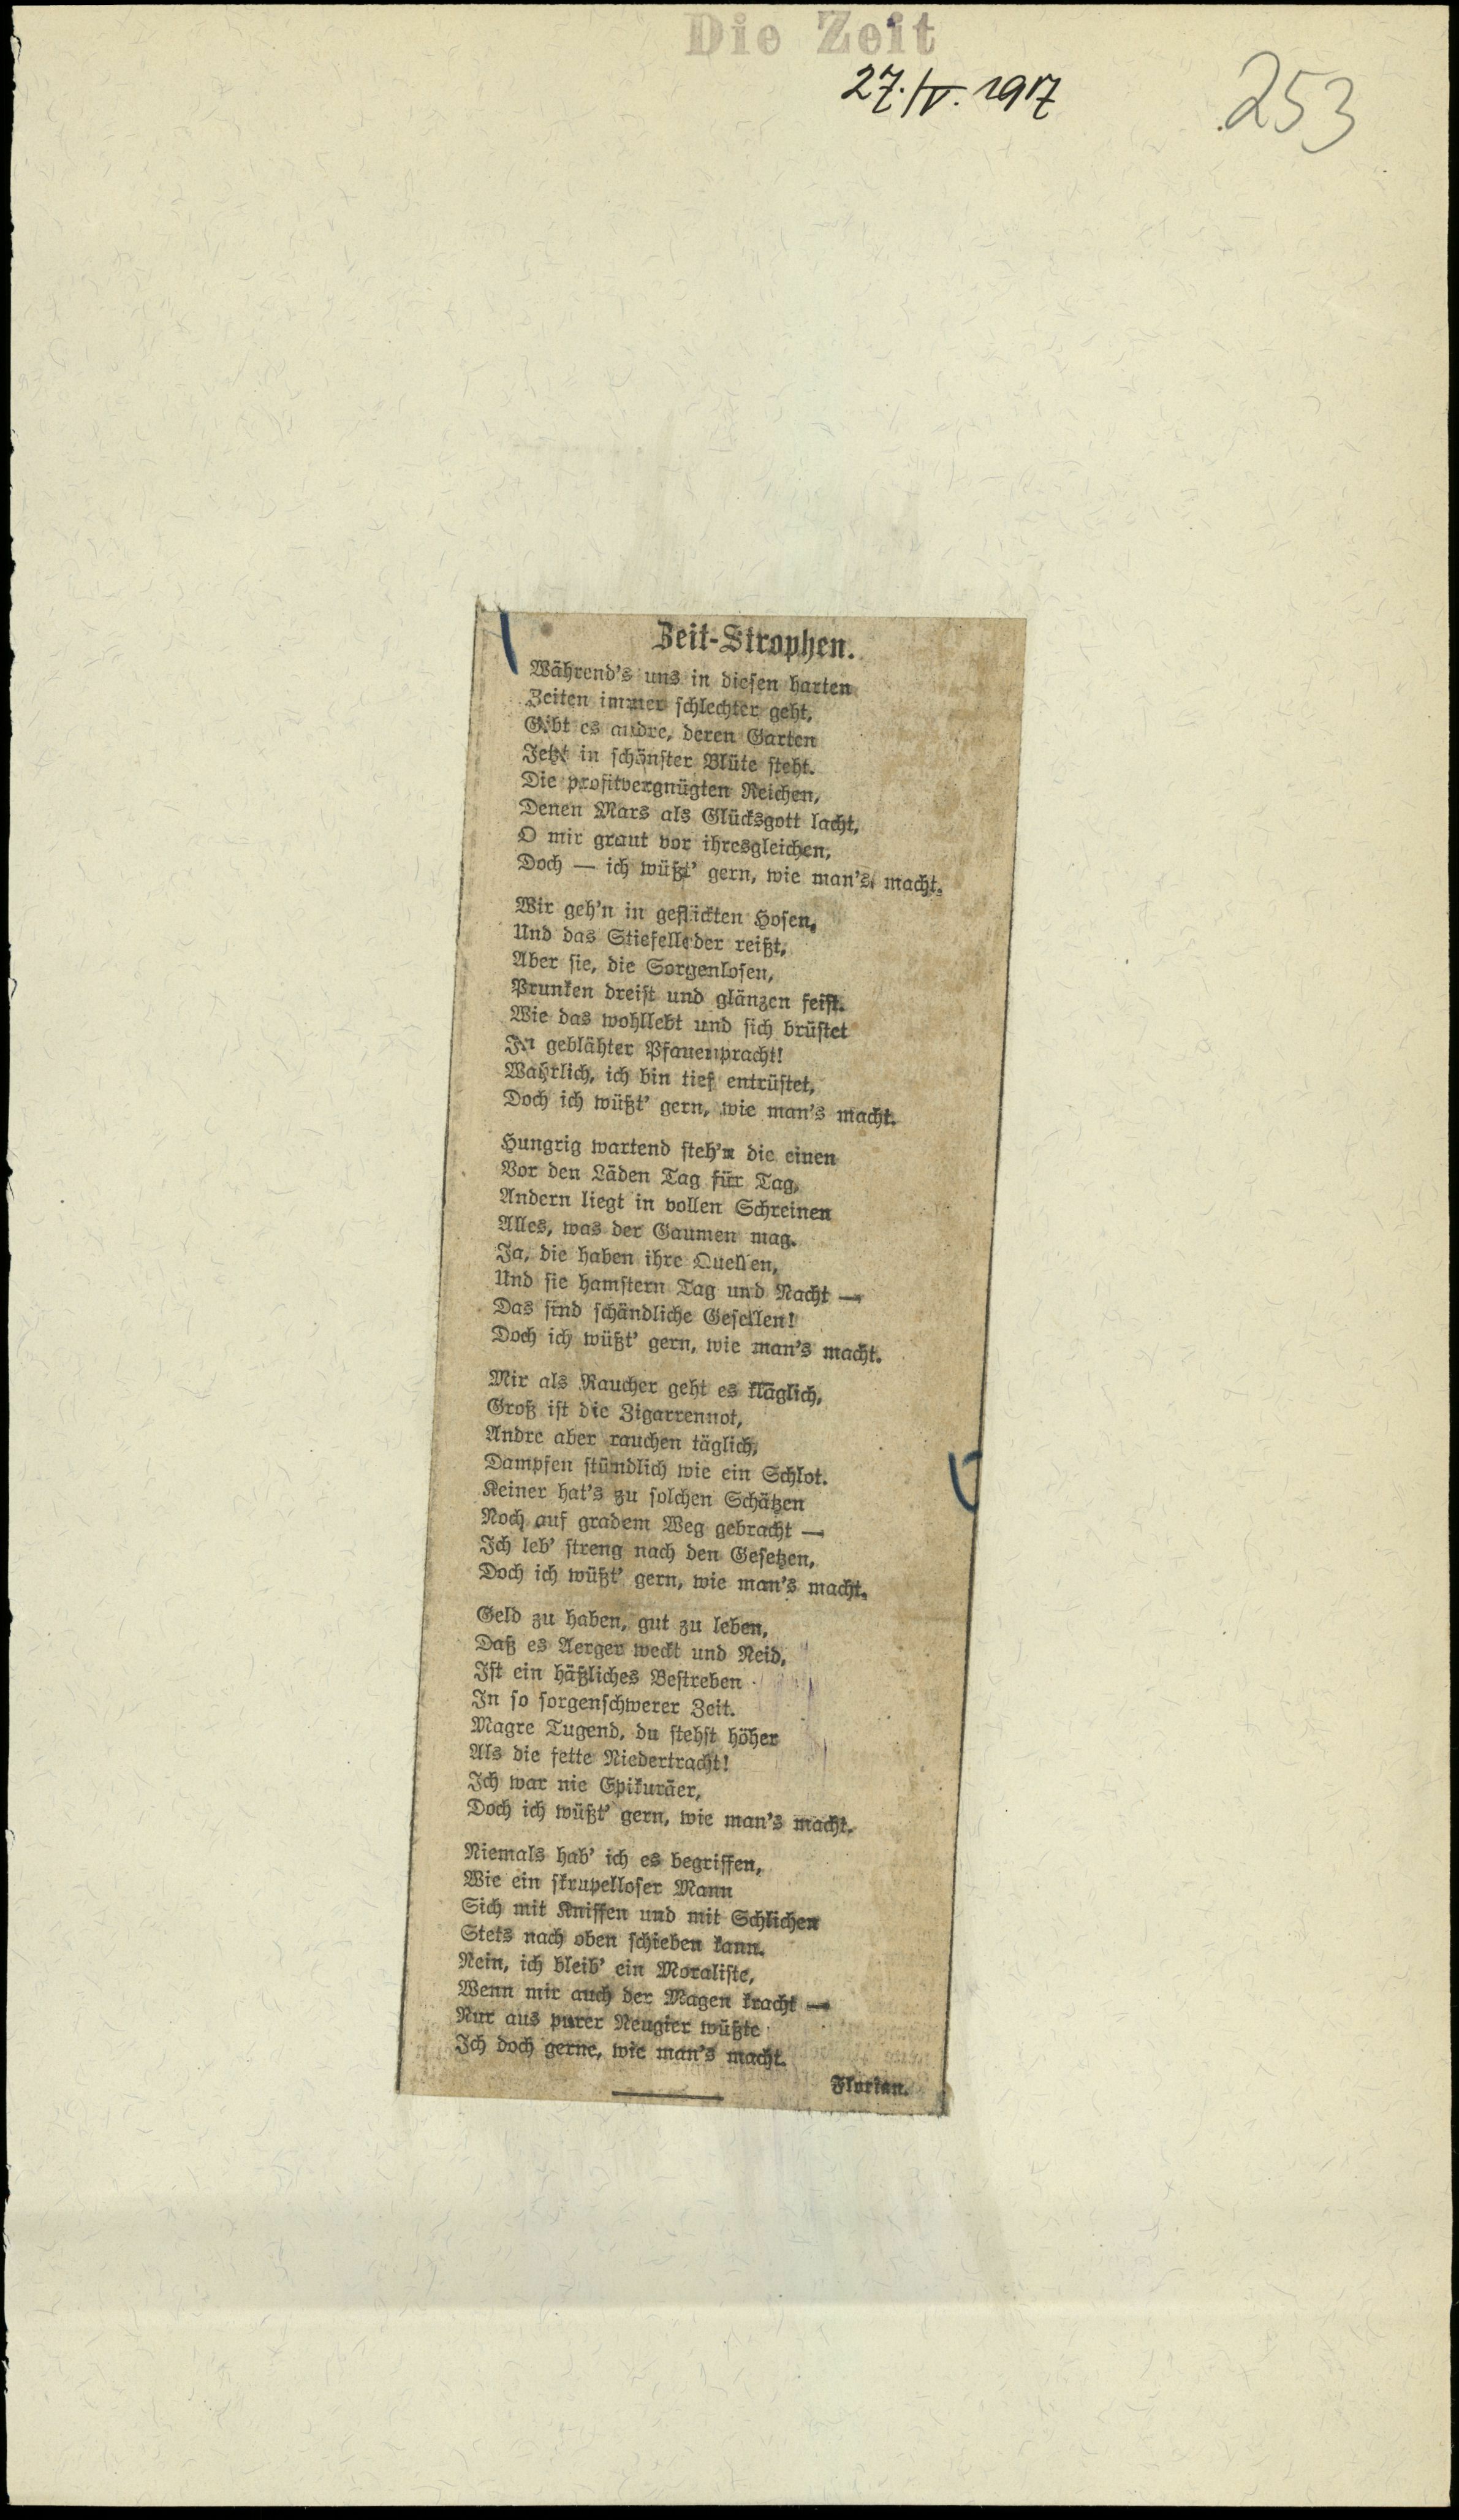 Die Zeit
27. IV. 1917
253
Zeit-Strophen.
Während's uns in diesen harten
Zeiten immer schlechter geht,
Gibt es andre, deren Garten
Jetzt in schönster Blüte steht.
Die profitvergnügten Reichen,
Denen Mars als Glücksgott lacht,
O mir graut vor ihresgleichen,
Doch — ich wüßt' gern, wie man's macht.
Wir geh'n in geflickten Hosen,
Und das Stiefelleder reißt,
Aber sie, die Sorgenlosen,
Prunken dreist und glänzen feist.
Wie das wohllebt und sich brüstet
In geblähter Pfauenpracht!
Wahrlich, ich bin tief entrüstet,
Doch ich wüßt' gern, wie man's macht.
Hungrig wartend steh'n die einen
Vor den Läden Tag für Tag,
Andern liegt in vollen Schreinen
Alles, was der Gaumen mag.
Ja, die haben ihre Quellen,
Und sie hamstern Tag und Nacht —
Das sind schändliche Gesellen!
Doch ich wüßt' gern, wie man's macht.
Mir als Raucher geht es kläglich,
Groß ist die Zigarrennot,
Andre aber rauchen täglich,
Dampfen stündlich wie ein Schlot.
Keiner hat's zu solchen Schätzen
Noch auf gradem Weg gebracht —
Ich leb' streng nach den Gesetzen,
Doch ich wüßt' gern, wie man's macht.
Geld zu haben, gut zu leben,
Daß es Aerger weckt und Neid,
Ist ein häßliches Bestreben
In so sorgenschwerer Zeit.
Magre Tugend, du stehst höher
Als die fette Niedertracht!
Ich war nie Epikuräer,
Doch ich wüßt' gern, wie man's macht.
Niemals hab' ich es begriffen,
Wie ein skrupelloser Mann
Sich mit Kniffen und mit Schlichen
Stets nach oben schieben kann.
Nein, ich bleib' ein Moraliste,
Wenn mir auch der Magen kracht —
Nur aus purer Neugier wüßte
Ich doch gerne, wie man's macht.
Florian.